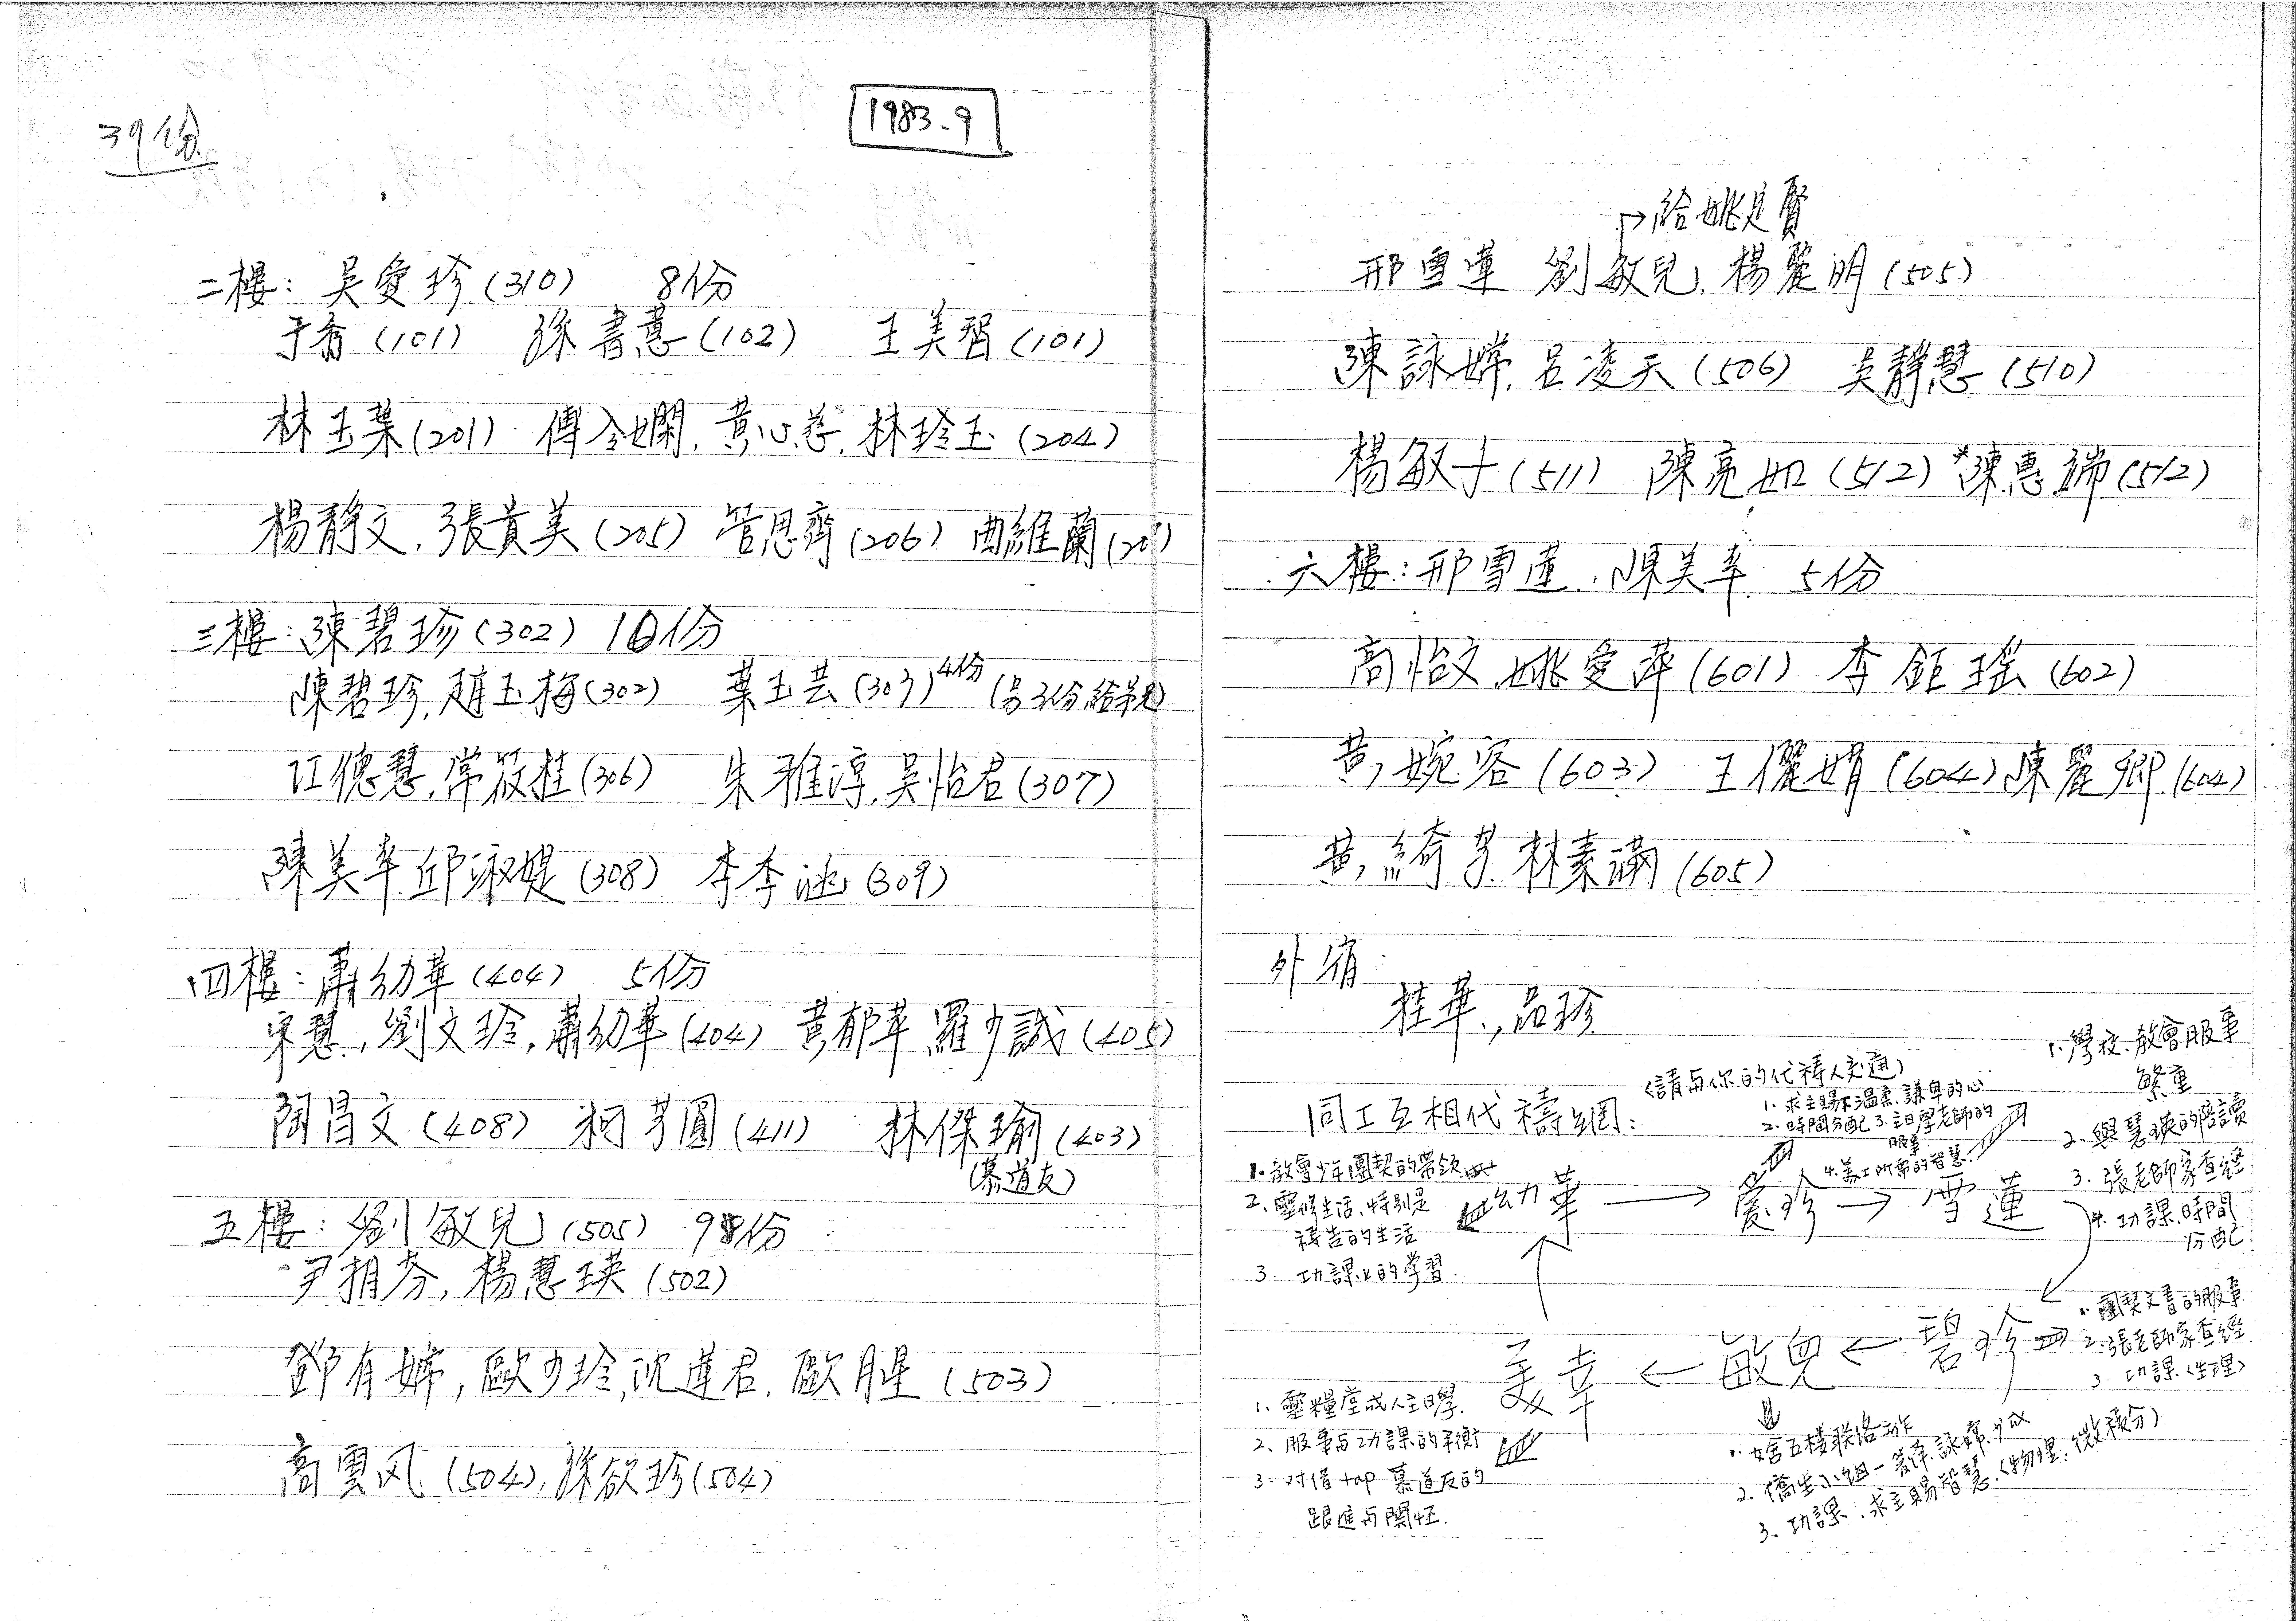 39份
1983.9
二樓：吳愛珍(310) 8份
于香(101) 孫書蕙(102) 王美智(101)
林玉葉(201) 傅令嫻, 黃心慈, 林玲玉(204)
楊靜文, 張貴美(205) 管思齊(206) 曲維蘭
三樓：陳碧珍(302) 10份
陳碧珍, 趙玉梅(302) 葉玉芸(303) 4份
江德慧, 常筱桂(306) 朱雅淳, 吳怡君(307)
陳美幸 邱淑媞(308) 李季涵(309)
四樓：蕭幼華(404) 5份
宋慧, 劉文玲, 蕭幼華(404) 黃郁苹 羅少誠(405)
陶昌文(408) 柯芳圓(411) 林傑瑜(403)
(慕道友)
五樓：劉敏兒(505) 9份
尹捐芬, 楊慧瑛(502)
鄧有娣, 歐少玲, 沈蓮君, 歐月星(503)
高雲风(504), 孫欲珍(504)
→給姚定賢
邢雪蓮 劉敏兒, 楊麗明(505)
陳詠嫦, 呂凌天(506) 吳靜慧(510)
楊敏子(511) 陳亮如(512) *陳惠端(512)
六樓：邢雪蓮, 陳美幸 5份
高怡文, 姚愛萍(601) 李鉅瑤(602)
黃婉容(603) 王儷娟(604) 陳麗卿(604)
黃綺芳 林素滿(605)
外宿：
桂華, 品珍
同工互相代禱網：
(請与你的代禱人交通)
1. 教會少年團契的帶領
2. 靈修生活、特別是
禱告的生活
3. 功課上的学習.
幼華 → 愛珍 → 雪蓮
1. 求主賜下溫柔、謙卑的心
2. 時間分配 3. 主日學老師的
服事
4. 美工所需的智慧
1. 學校、教會服事
繁重
2. 與慧瑛的陪讀
3. 張老師家查經
4. 功課、時間
分配
美幸 ← 敏兒 ← 碧珍
1. 團契文書的服事
2. 張老師家查經
3. 功課(生理)
1. 靈糧堂成人主日學.
2. 服事与功課的平衡
3. 对信top 慕道友的
跟進与関怀.
1. 女舍五樓联络工作
3. 功課, 求主賜智慧.(物理, 微積分)